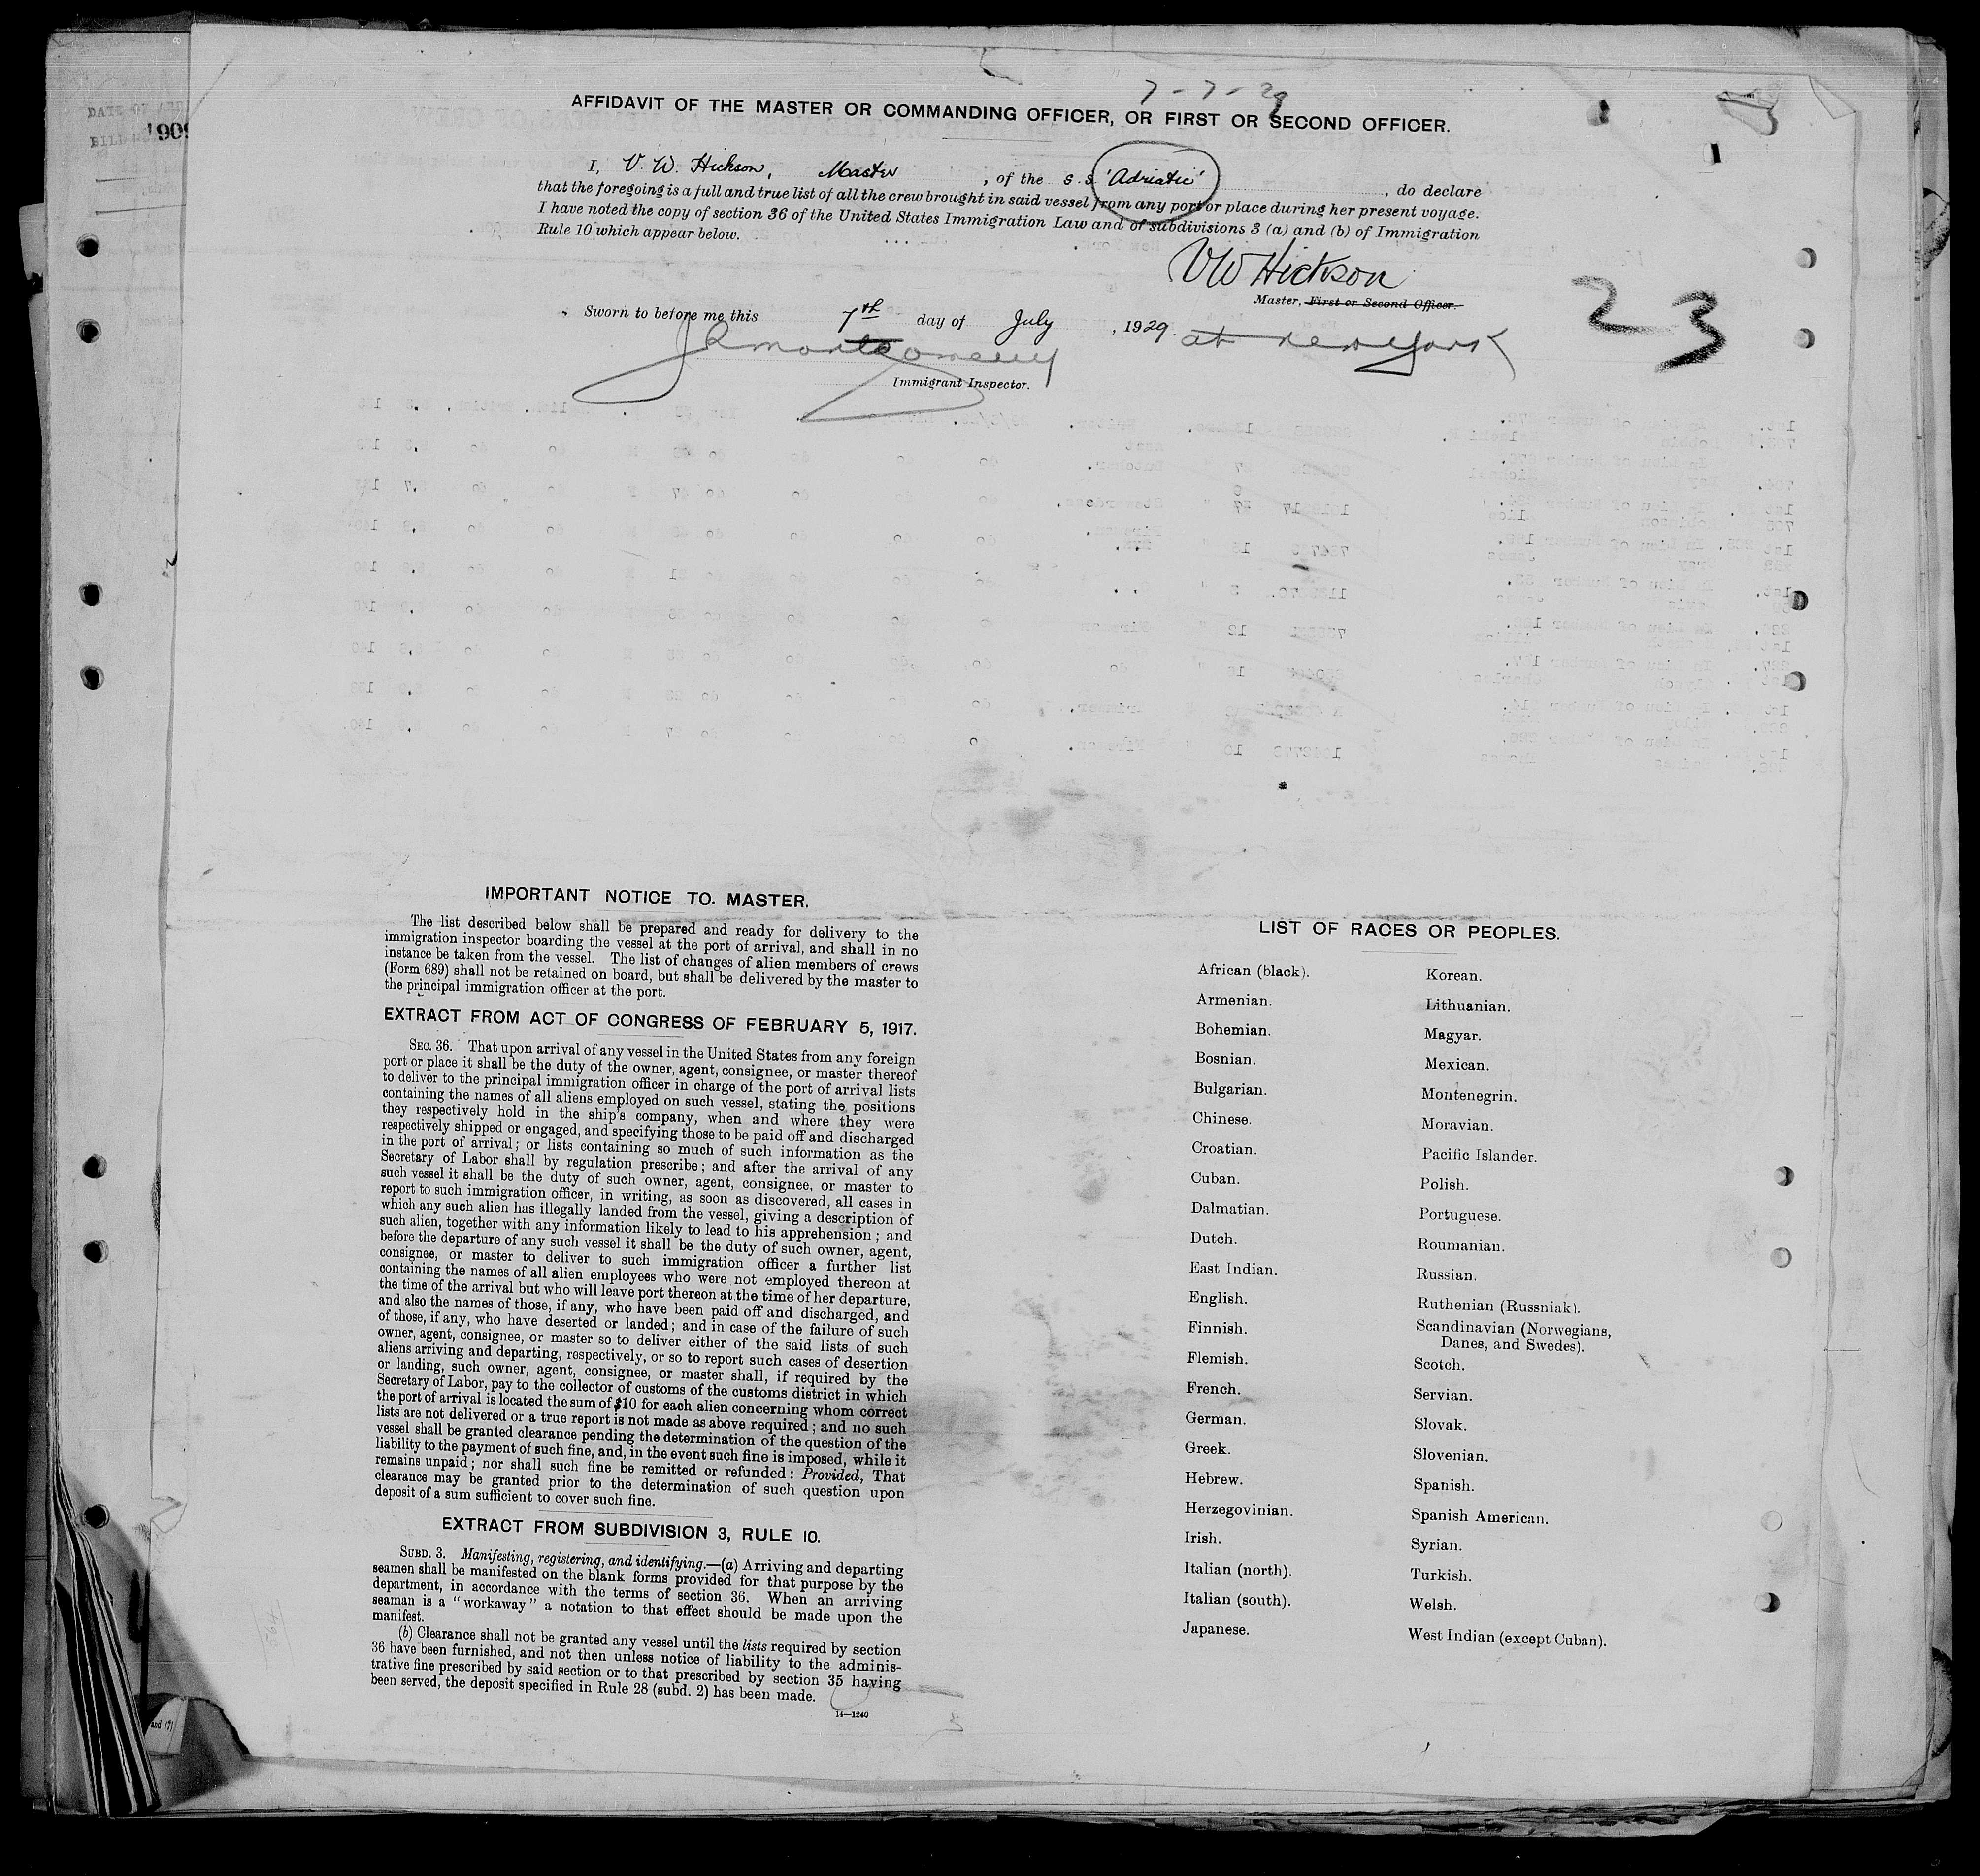 7-7-29
AFFIDAVIT OF THE MASTER OR COMMANDING OFFICER, OR FIRST OR SECOND OFFICER.
1
I, V. W. Hickson, Master, of the s.s. 'Adriatic', do declare
that the foregoing is a full and true list of all the crew brought in said vessel from any port or place during her present voyage.
I have noted the copy of section 36 of the United States Immigration Law and of subdivisions 3 (a) and (b) of Immigration
Rule 10 which appear below.
VW Hickson
Master, First or Second Officer.
23
Sworn to before me this 7th day of July, 1929. at New York
Montgomery
Immigrant Inspector.
IMPORTANT NOTICE TO MASTER.
The list described below shall be prepared and ready for delivery to the
immigration inspector boarding the vessel at the port of arrival, and shall in no
instance be taken from the vessel. The list of changes of alien members of crews
(Form 689) shall not be retained on board, but shall be delivered by the master to
the principal immigration officer at the port.
EXTRACT FROM ACT OF CONGRESS OF FEBRUARY 5, 1917.
SEC. 36. That upon arrival of any vessel in the United States from any foreign
port or place it shall be the duty of the owner, agent, consignee, or master thereof
to deliver to the principal immigration officer in charge of the port of arrival lists
containing the names of all aliens employed on such vessel, stating the positions
they respectively hold in the ship's company, when and where they were
respectively shipped or engaged, and specifying those to be paid off and discharged
in the port of arrival; or lists containing so much of such information as the
Secretary of Labor shall by regulation prescribe; and after the arrival of any
such vessel it shall be the duty of such owner, agent, consignee, or master to
report to such immigration officer, in writing, as soon as discovered, all cases in
which any such alien has illegally landed from the vessel, giving a description of
such alien, together with any information likely to lead to his apprehension; and
before the departure of any such vessel it shall be the duty of such owner, agent,
consignee, or master to deliver to such immigration officer a further list
containing the names of all alien employees who were not employed thereon at
the time of the arrival but who will leave port thereon at the time of her departure,
and also the names of those, if any, who have been paid off and discharged, and
of those, if any, who have deserted or landed; and in case of the failure of such
owner, agent, consignee, or master so to deliver either of the said lists of such
aliens arriving and departing, respectively, or so to report such cases of desertion
or landing, such owner, agent, consignee, or master shall, if required by the
Secretary of Labor, pay to the collector of customs of the customs district in which
the port of arrival is located the sum of $10 for each alien concerning whom correct
lists are not delivered or a true report is not made as above required; and no such
vessel shall be granted clearance pending the determination of the question of the
liability to the payment of such fine, and, in the event such fine is imposed, while it
remains unpaid; nor shall such fine be remitted or refunded: Provided, That
clearance may be granted prior to the determination of such question upon
deposit of a sum sufficient to cover such fine.
EXTRACT FROM SUBDIVISION 3, RULE 10.
SUBD. 3. Manifesting, registering, and identifying.—(a) Arriving and departing
seamen shall be manifested on the blank forms provided for that purpose by the
department, in accordance with the terms of section 36. When an arriving
seaman is a "workaway" a notation to that effect should be made upon the
manifest.
(b) Clearance shall not be granted any vessel until the lists required by section
36 have been furnished, and not then unless notice of liability to the adminis-
trative fine prescribed by said section or to that prescribed by section 35 having
been served, the deposit specified in Rule 28 (subd. 2) has been made.
14—1240
LIST OF RACES OR PEOPLES.
African (black).
Armenian.
Bohemian.
Bosnian.
Bulgarian.
Chinese.
Croatian.
Cuban.
Dalmatian.
Dutch.
East Indian.
English.
Finnish.
Flemish.
French.
German.
Greek.
Hebrew.
Herzegovinian.
Irish.
Italian (north).
Italian (south).
Japanese.
Korean.
Lithuanian.
Magyar.
Mexican.
Montenegrin.
Moravian.
Pacific Islander.
Polish.
Portuguese.
Roumanian.
Russian.
Ruthenian (Russniak).
Scandinavian (Norwegians,
Danes, and Swedes).
Scotch.
Servian.
Slovak.
Slovenian.
Spanish.
Spanish American.
Syrian.
Turkish.
Welsh.
West Indian (except Cuban).